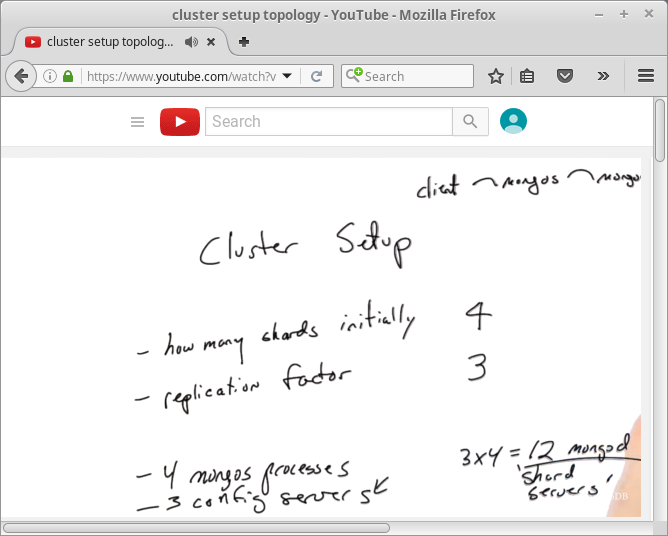 cluster setup topology - YouTube - Mozilla Firefox
cluster setup topolog...
https://www.youtube.com/watch?v
Search
Search
client mongos mongo
Cluster Setup
- how many shards initially 4
- replication factor 3
3x4 = 12 mongod
'shard
servers'
- 4 mongos processes
- 3 config servers
DB